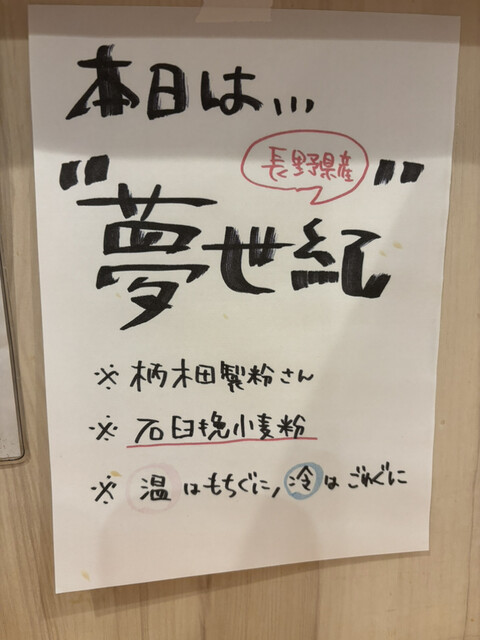 本日は、、、
長野県産
"夢世紀"
※ 柄木田製粉さん
※ 石臼挽小麦粉
※ 温はもちぐに、冷はごわぐに